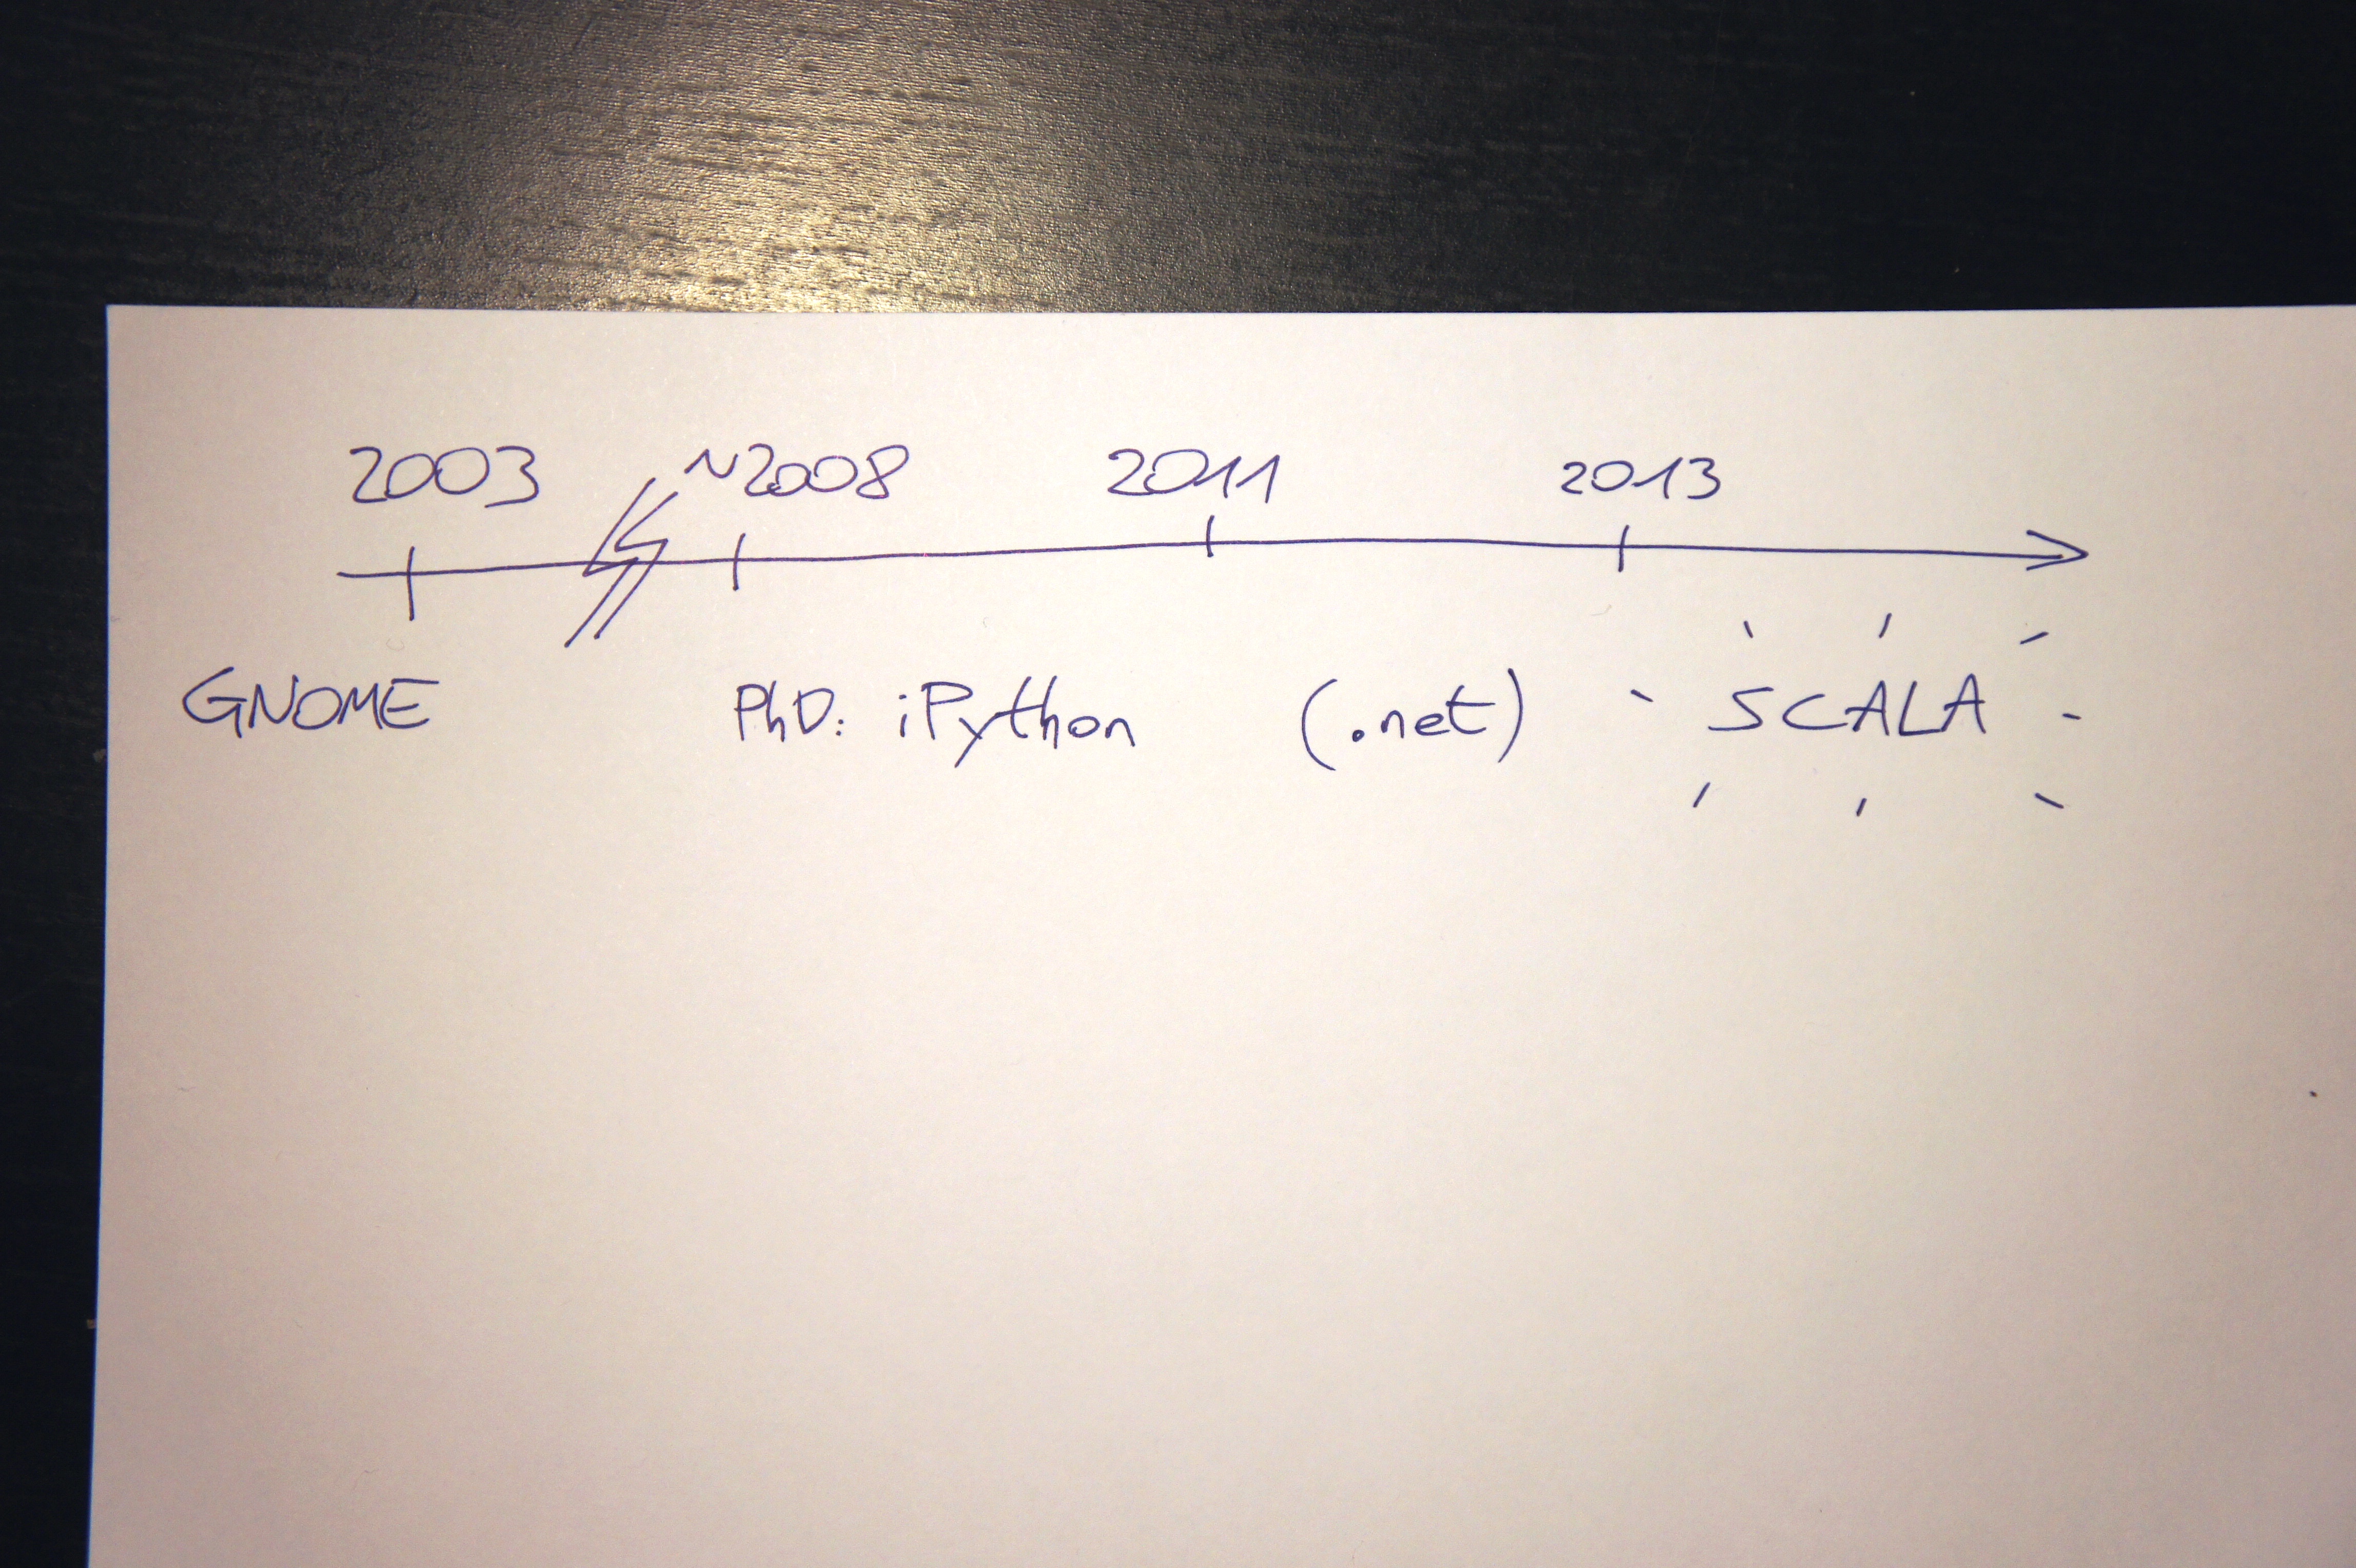 2003 ~2008 2011 2013
GNOME PhD: iPython (.net) SCALA